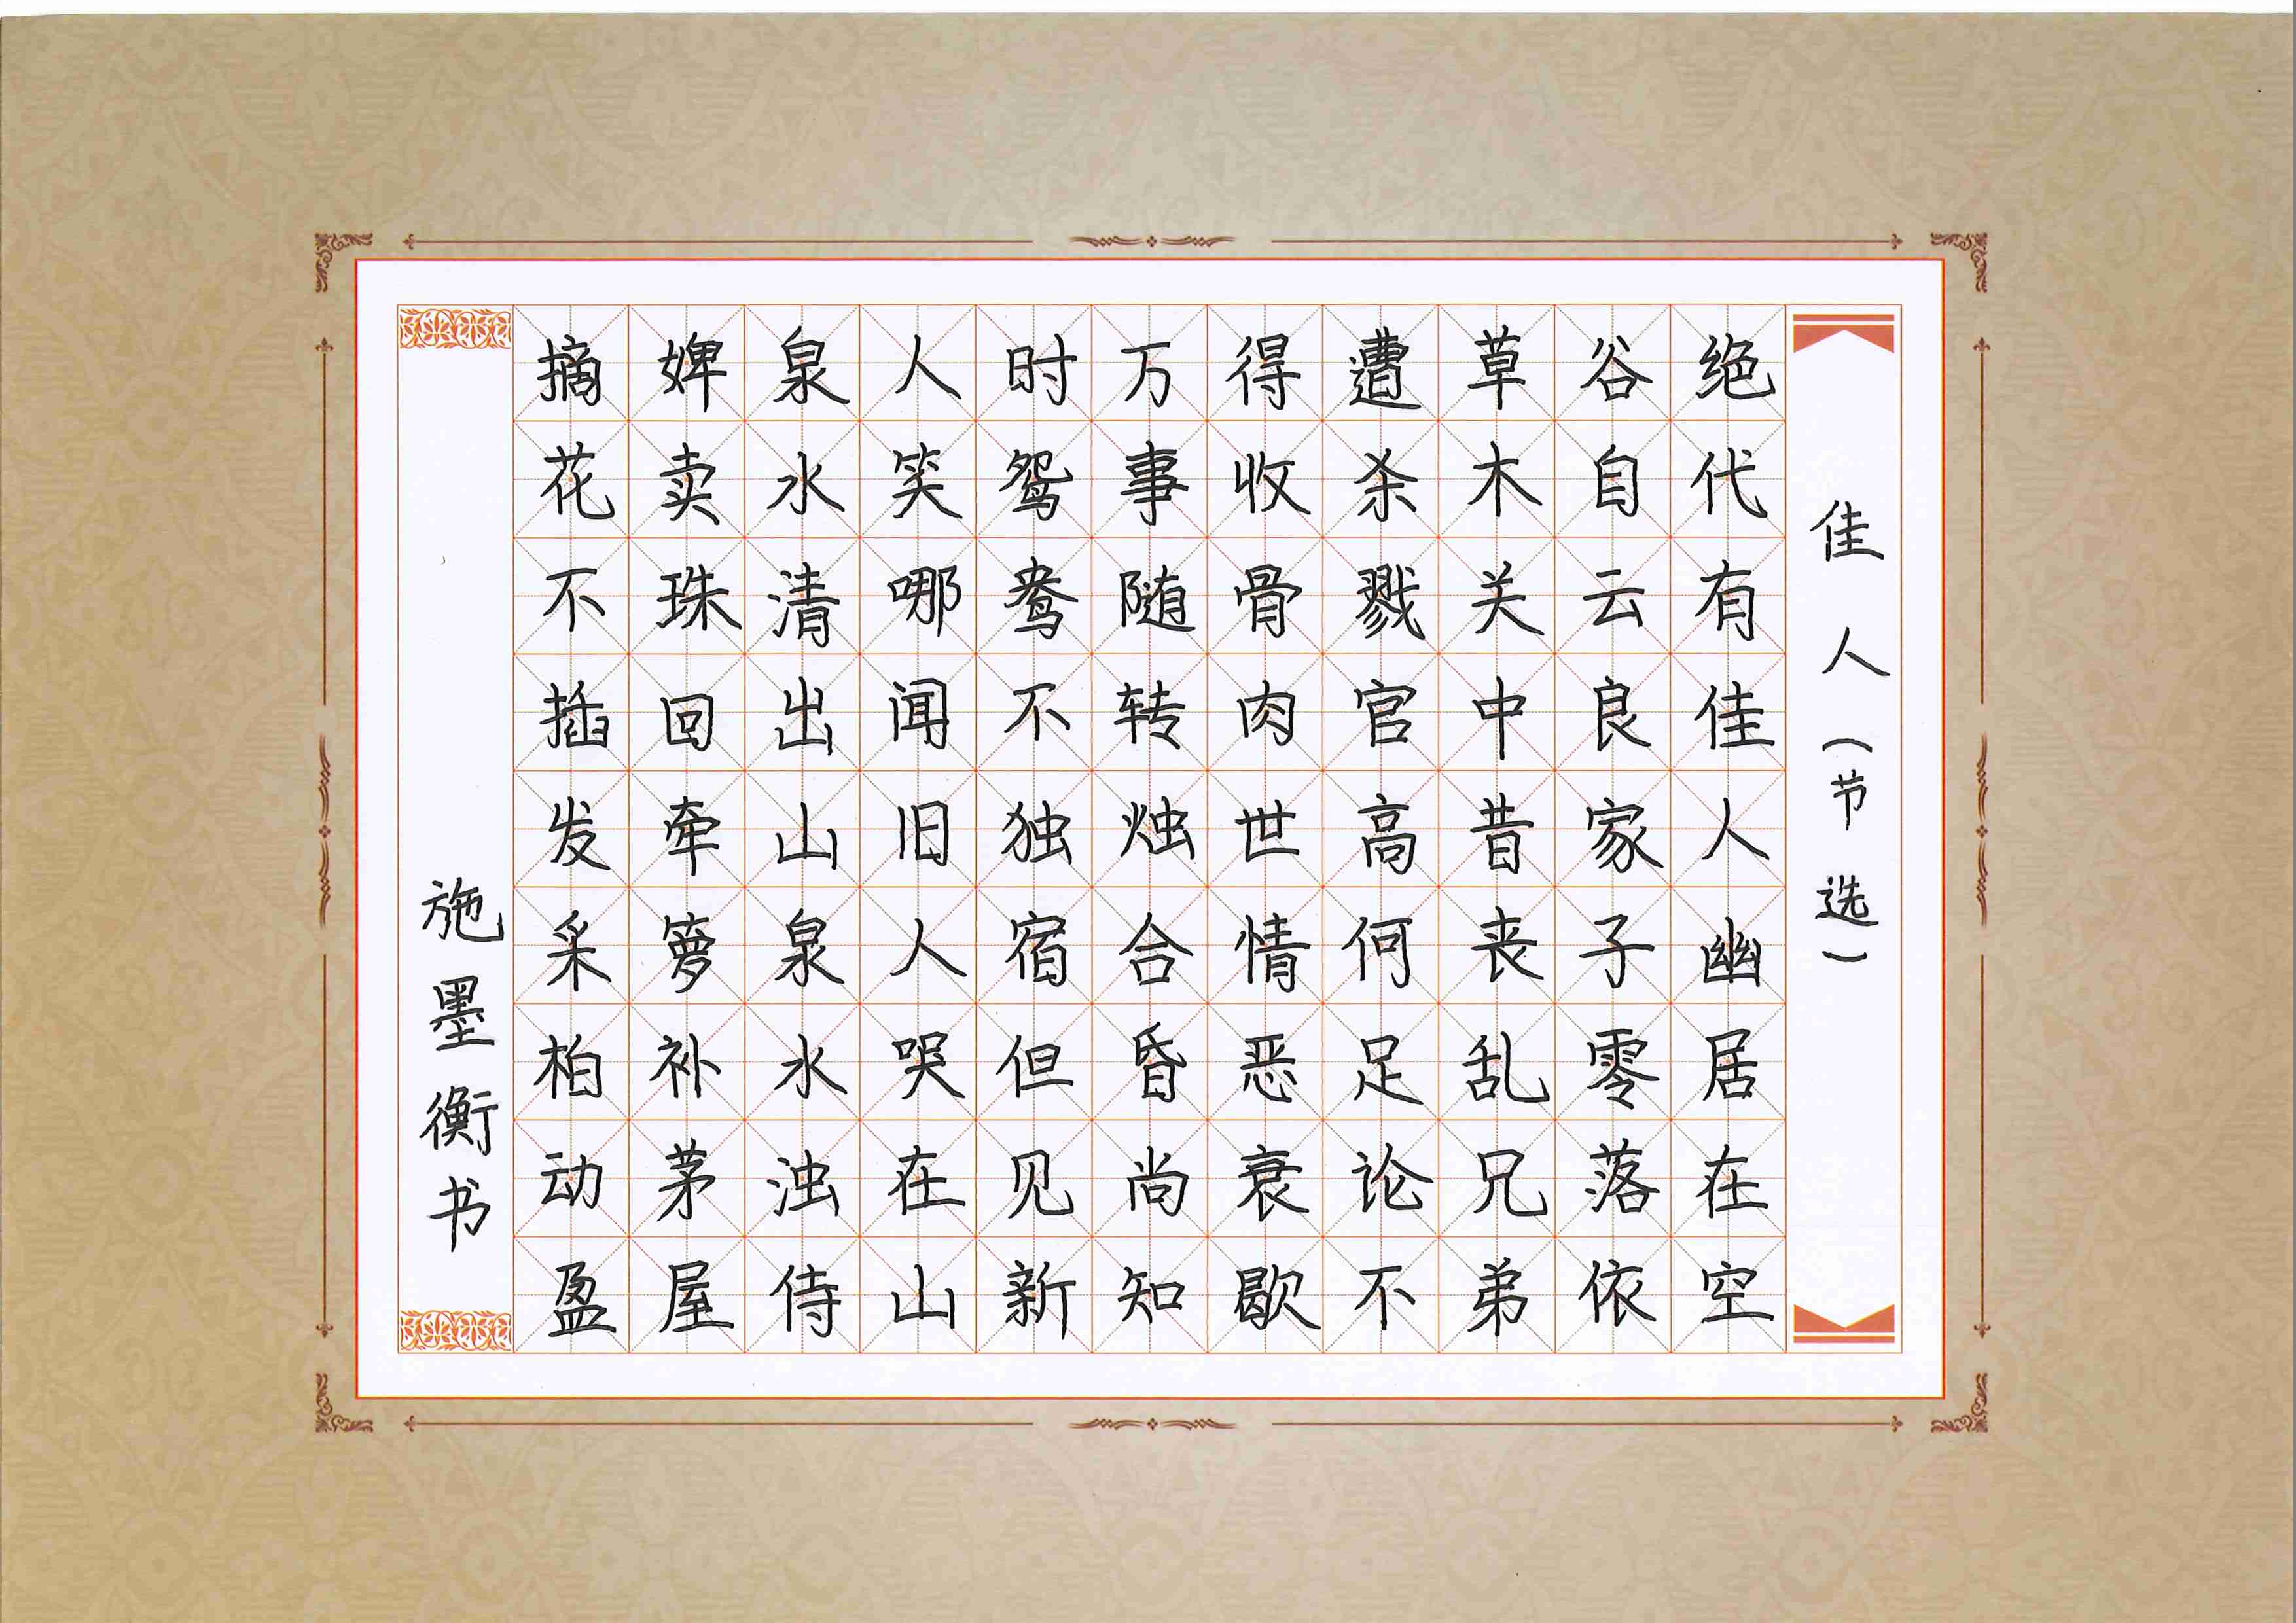 佳人（节选）
绝代有佳人幽居在空
谷自云良家子零落依
草木关中昔丧乱兄弟
遭杀戮官高何足论不
得收骨肉世情恶衰歇
万事随转烛合昏尚知
时鸳鸯不独宿但见新
人笑哪闻旧人哭在山
泉水清出山泉水浊侍
婢卖珠回牵箩补茅屋
摘花不插发采柏动盈
施墨衡书